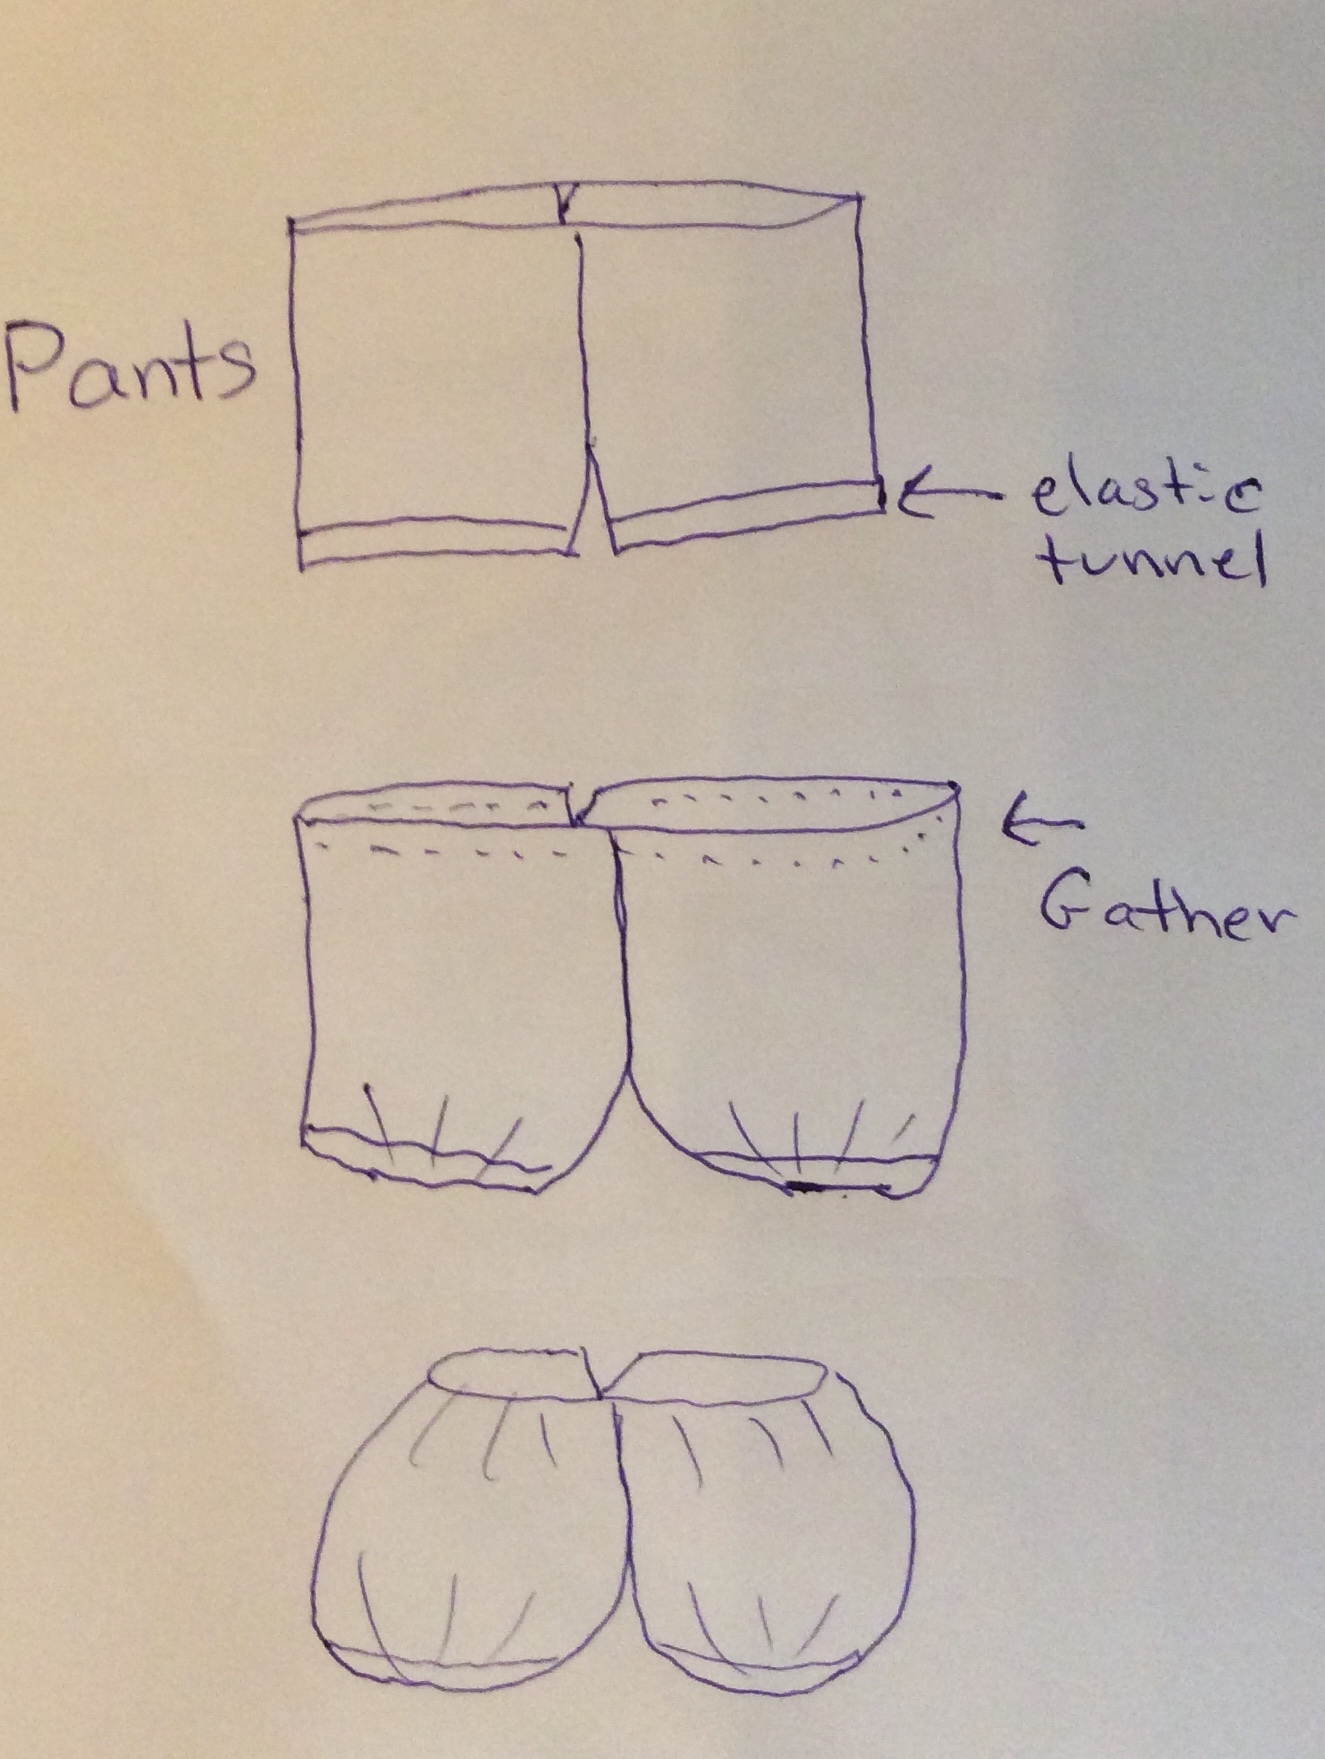 Pants
elastic
tunnel
Gather